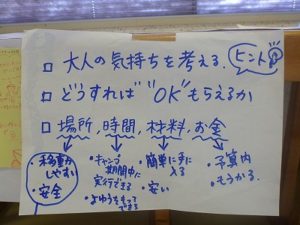 □ 大人の気持ちを考える。
ヒント
□ どうすれば"OK"もらえるか
□ 場所,時間,材料,お金
・移動しやすい
・安全
・キャンプ期間中に実行できる
・簡単に手に入る
・安い
・予算内
・もうかる。